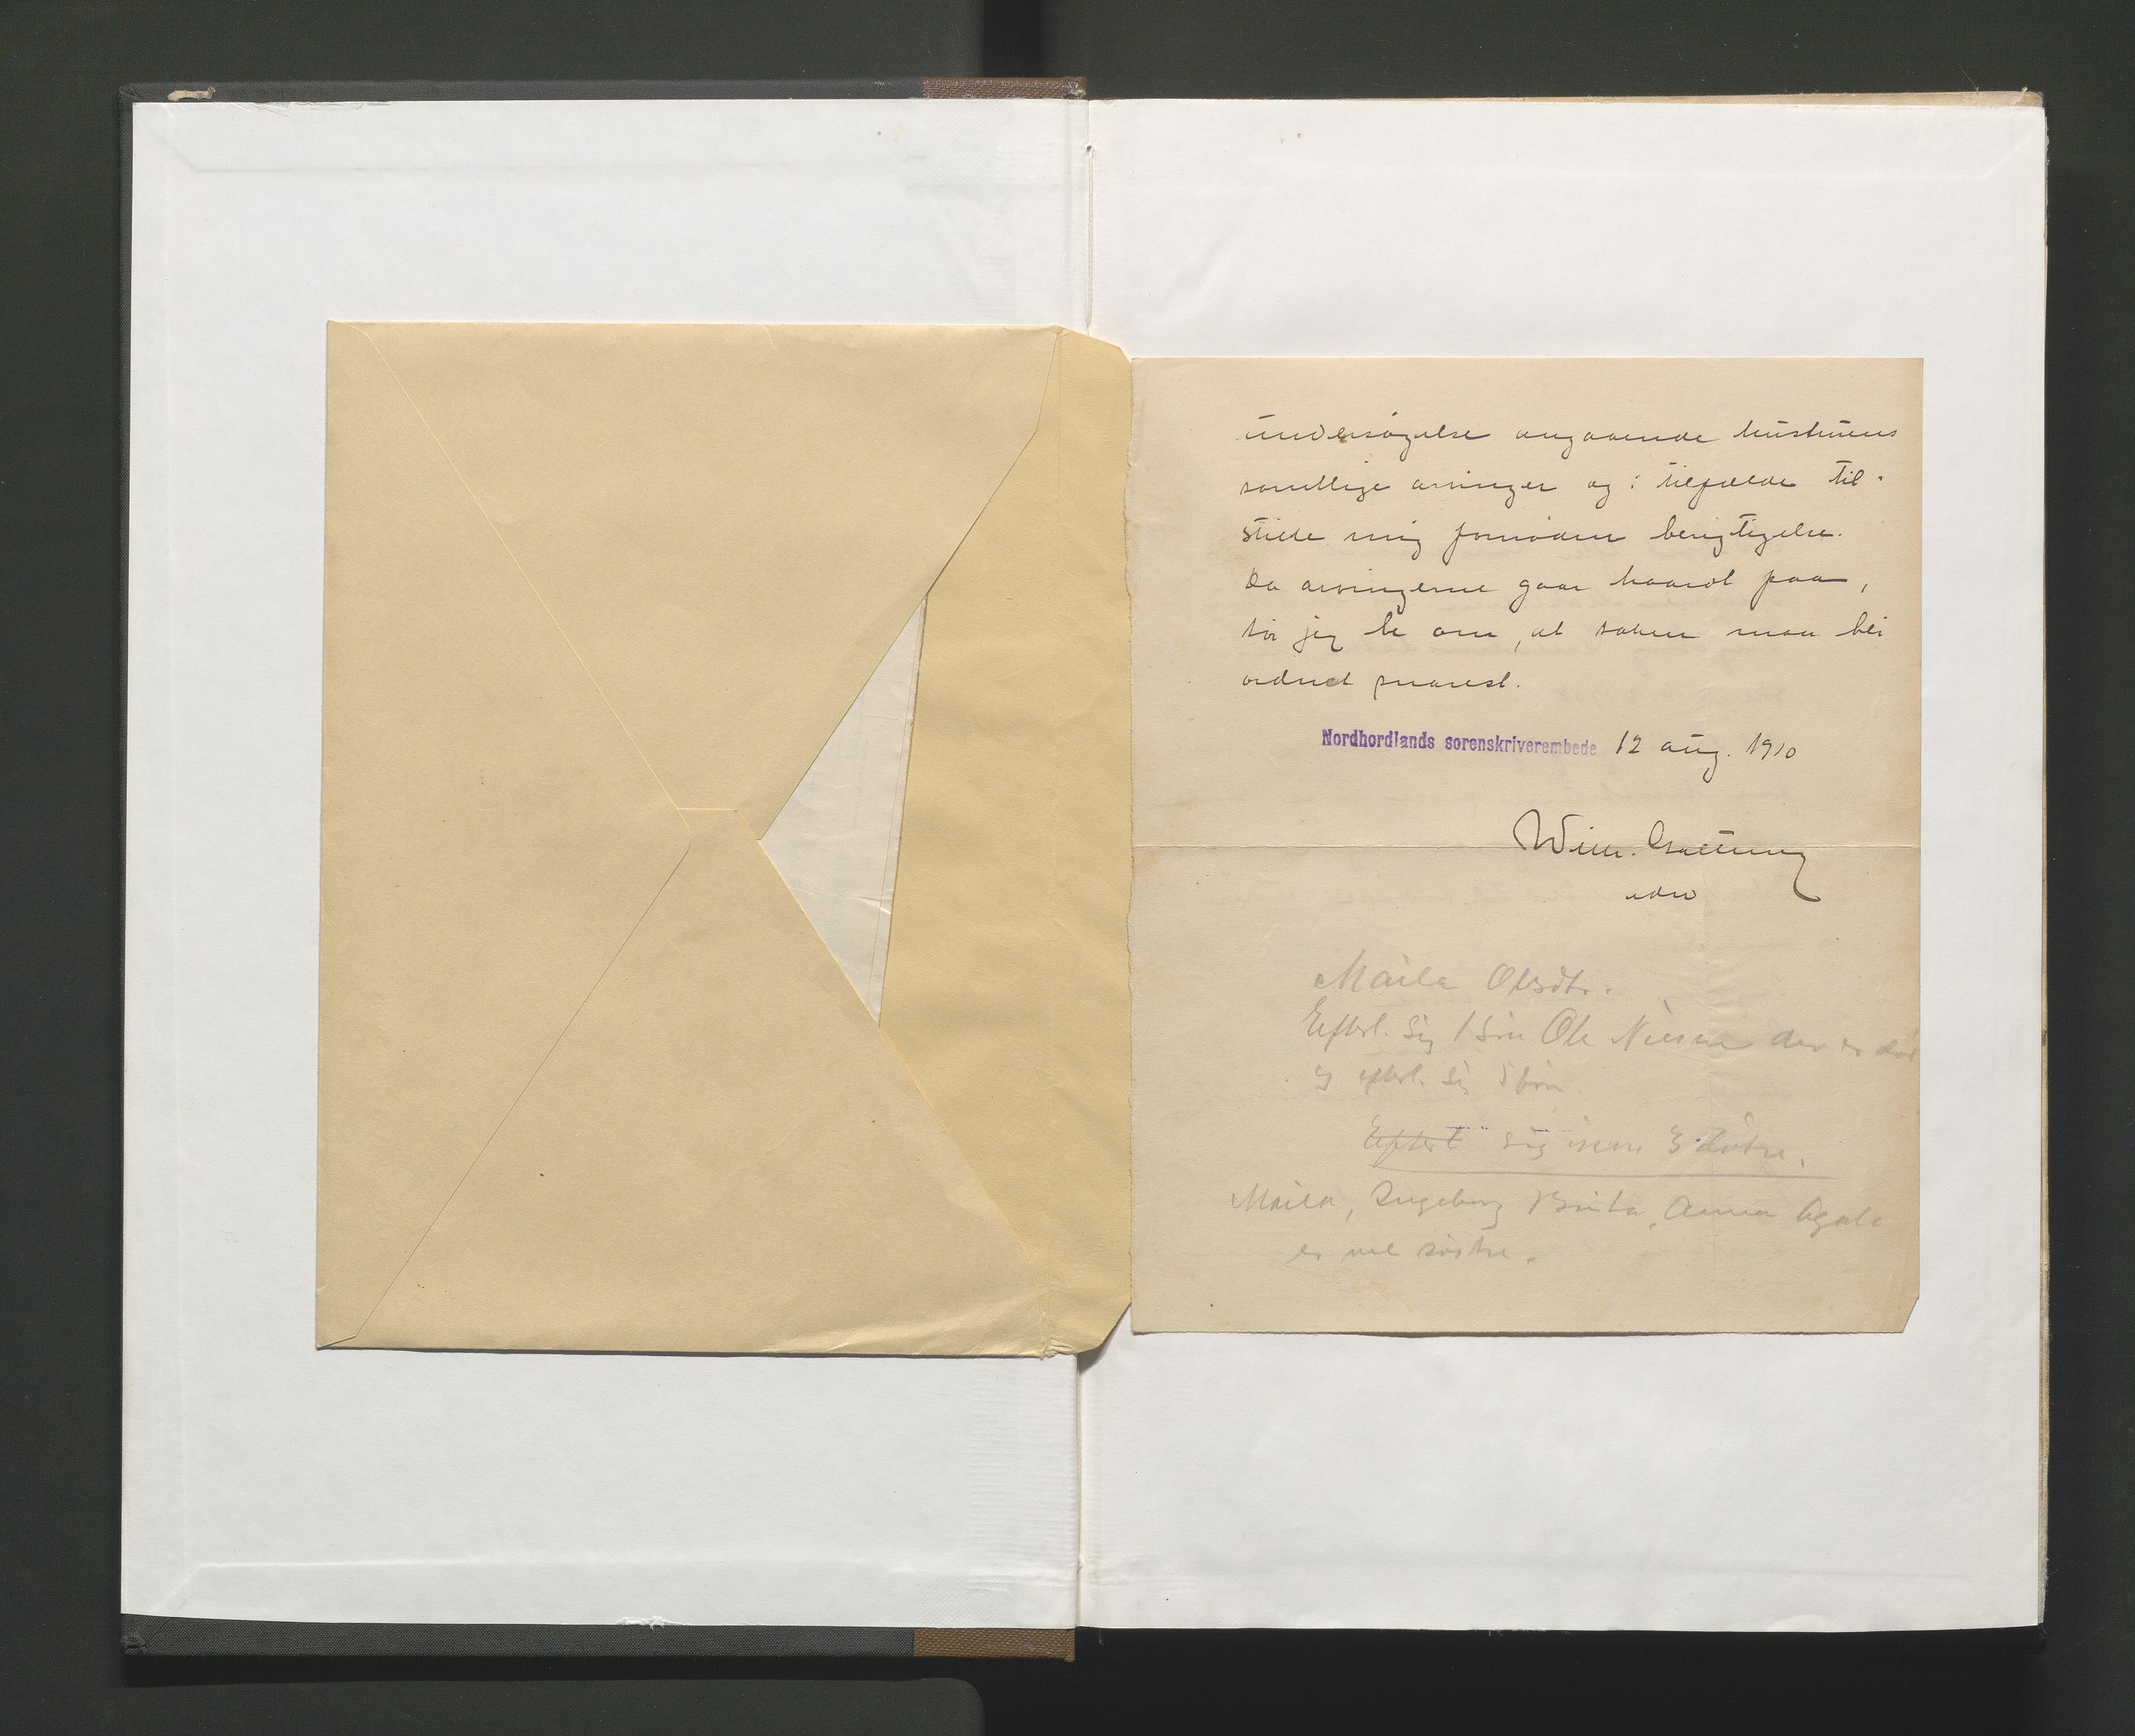 undersøgelse angaaende hustruens
samtlige arvinger og i tilfælde til-
stille mig fornøden berigtigelse.
Da arvingerne gaar haardt paa,
tør jeg be om, at saken maa bli
ordnet snarest.
Nordhordlands sorenskriverembede 12 aug. 1910
Wilh.
Marta Olsdtr.
Efterl. sig 1 søn Ole Nilsen der er død
og efterl. sig 5 børn.
Efterl sig 3 døtre.
Marta, Ingeborg Brita, Anna
er søstre.